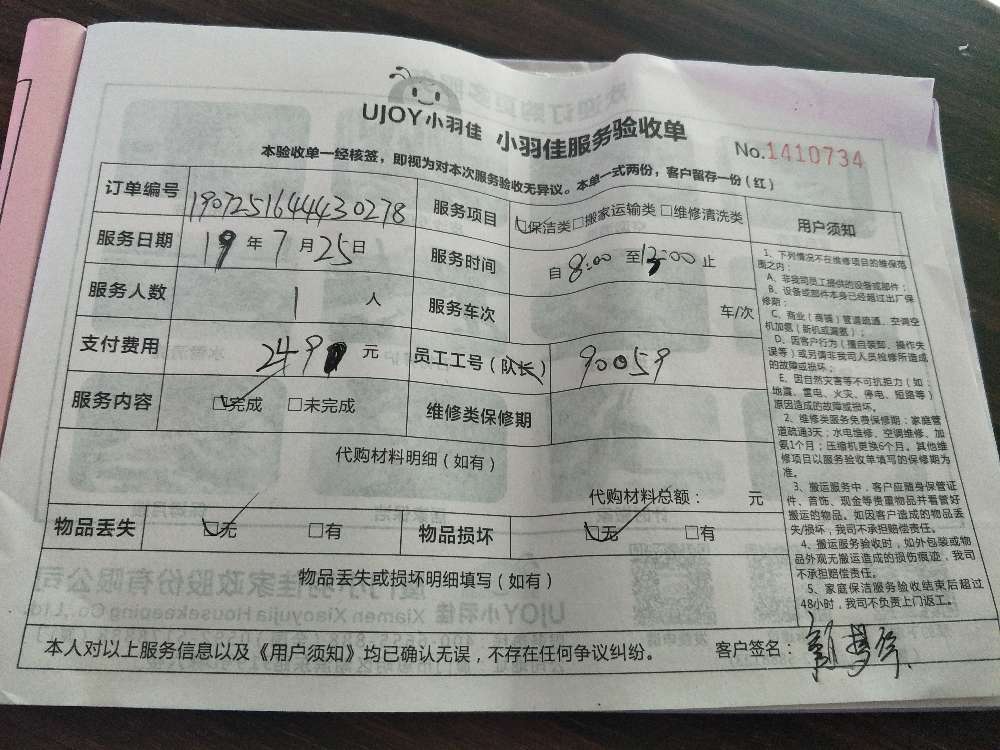 UJOY小羽佳 小羽佳服务验收单
No.1410734
本验收单一经核签，即视为对本次服务验收无异议。本单一式两份，客户留存一份（红）
订单编号 1907251644430278 服务项目 ☑保洁类□搬家运输类□维修清洗类
服务日期 19年7月25日 服务时间 自8:00至13:00止
服务人数 1人 服务车次 车/次
支付费用 249元 员工工号（队长） 90059
服务内容 ☑完成 □未完成 维修类保修期
代购材料明细（如有）
代购材料总额： 元
物品丢失 ☑无 □有 物品损坏 ☑无 □有
物品丢失或损坏明细填写（如有）
用户须知
1、下列情况不在维修项目的维保范
围之内：
A、非我司员工提供的设备或部件；
B、设备或部件本身已经超过出厂保
修期；
C、商业（商铺）管道疏通、空调空
机加氨（新机或漏氨）；
D、因客户行为（擅自装卸、操作失
误等）或另请非我司人员检修所造成
的故障或损坏；
E、因自然灾害等不可抗拒力（如：
地震、雷电、火灾、停电、短路等）
原因造成的故障或损坏。
2、维修类服务免费保修期：家庭管
道疏通3天；水电维修、空调维修、加
氨1个月；压缩机更换6个月。其他维
修项目以服务验收单填写的保修期为
准。
3、搬运服务中，客户应随身保管证
件、首饰、现金等贵重物品并看管好
搬运的物品。如因客户造成的物品丢
失/损坏，我司不承担赔偿责任。
4、搬运服务验收时，如外包装或物
品外观无搬运造成的损伤痕迹，我司
不承担赔偿责任。
5、家庭保洁服务验收结束后超过
48小时，我司不负责上门返工。
本人对以上服务信息以及《用户须知》均已确认无误，不存在任何争议纠纷。 客户签名：